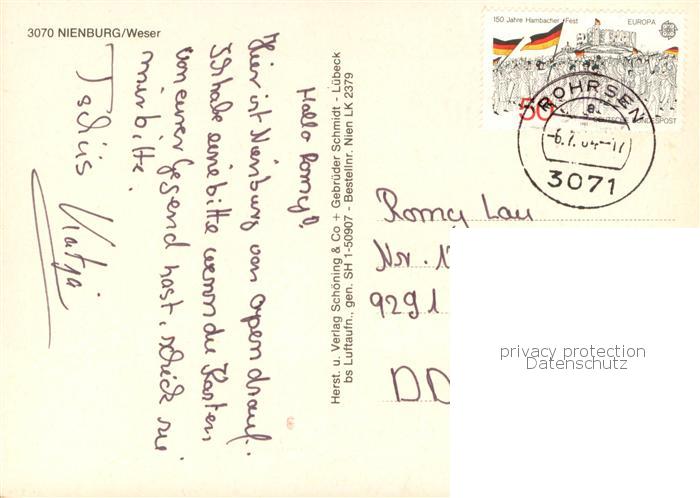 3070 NIENBURG/Weser
Hallo Romy!
Hier ist Nienburg von open drauf.
Ich habe eine bitte wenn du Karten
von eurer Gegend hast, schick sie
mir bitte.
Tschüs Katja
Herst. u. Verlag Schöning & Co + Gebrüder Schmidt - Lübeck
bs Luftaufn., gen. SH 1-50907 - Bestellnr. Nien LK 2379
150 Jahre Hambacher Fest
EUROPA
50
DEUTSCHE BUNDESPOST
ROHRSEN
a
-6.7.84-17
3071
Romy Lau
Nr. 1
9291
DD
privacy protection
Datenschutz